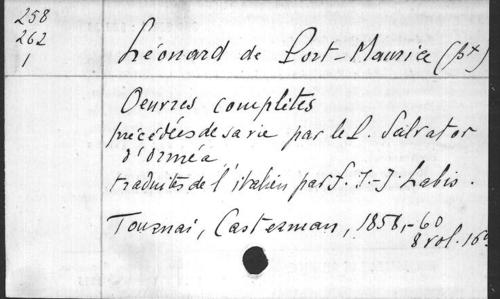 258
262
1
Léonard de Port-Maurice (st)
Oeuvres complètes
précédées de sa vie par le P. Salvator
d'Orméa
traduites de l'italien par F. I.-J. Labis.
Tournai, Casterman, 1858,-60
8 vol. 16°